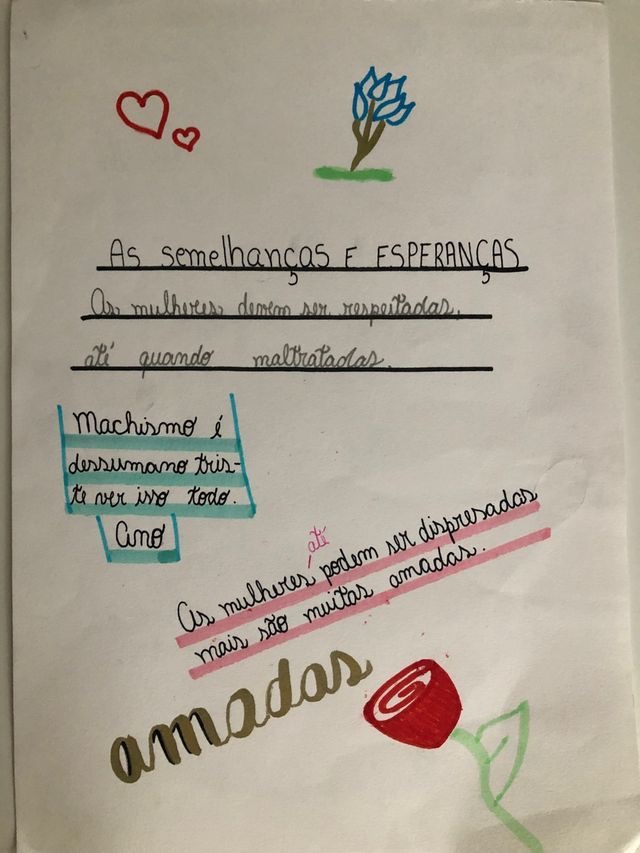 As semelhanças E ESPERANÇAS
As mulheres devem ser respeitadas.
até quando maltratadas.
Machismo é
dessumano tris-
te ver isso todo.
Ano
As mulheres até podem ser dispresadas
mais são muitas amadas.
amadas